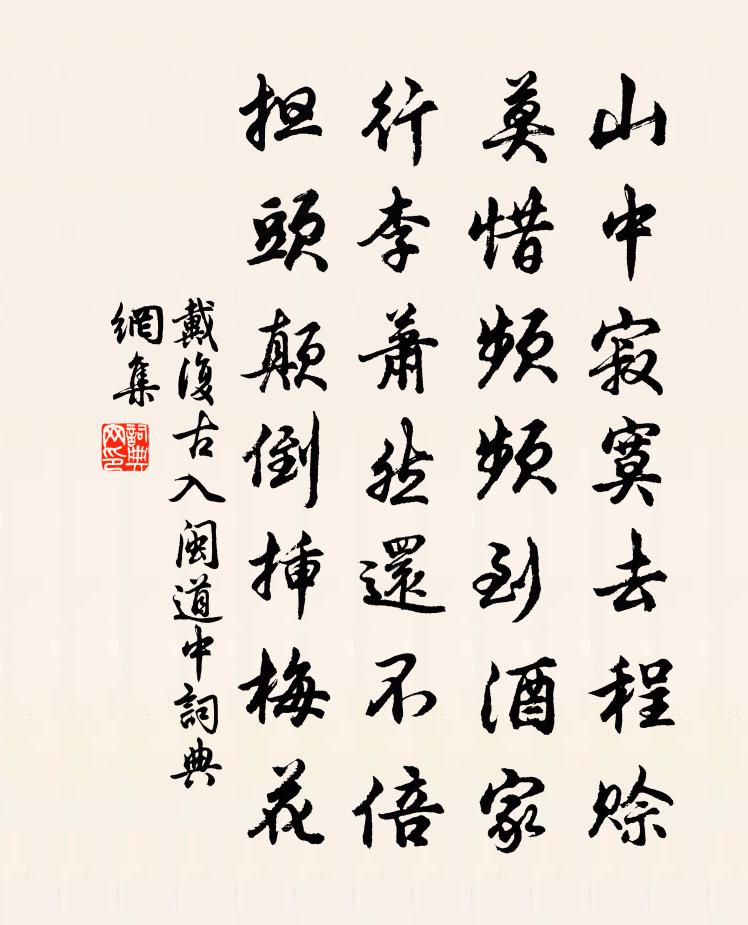 山中寂寞去程賒
莫惜頻頻到酒家
行李蕭然還不倍
担頭顛倒挿梅花
戴復古入閩道中詞典
網集
詞典
网印